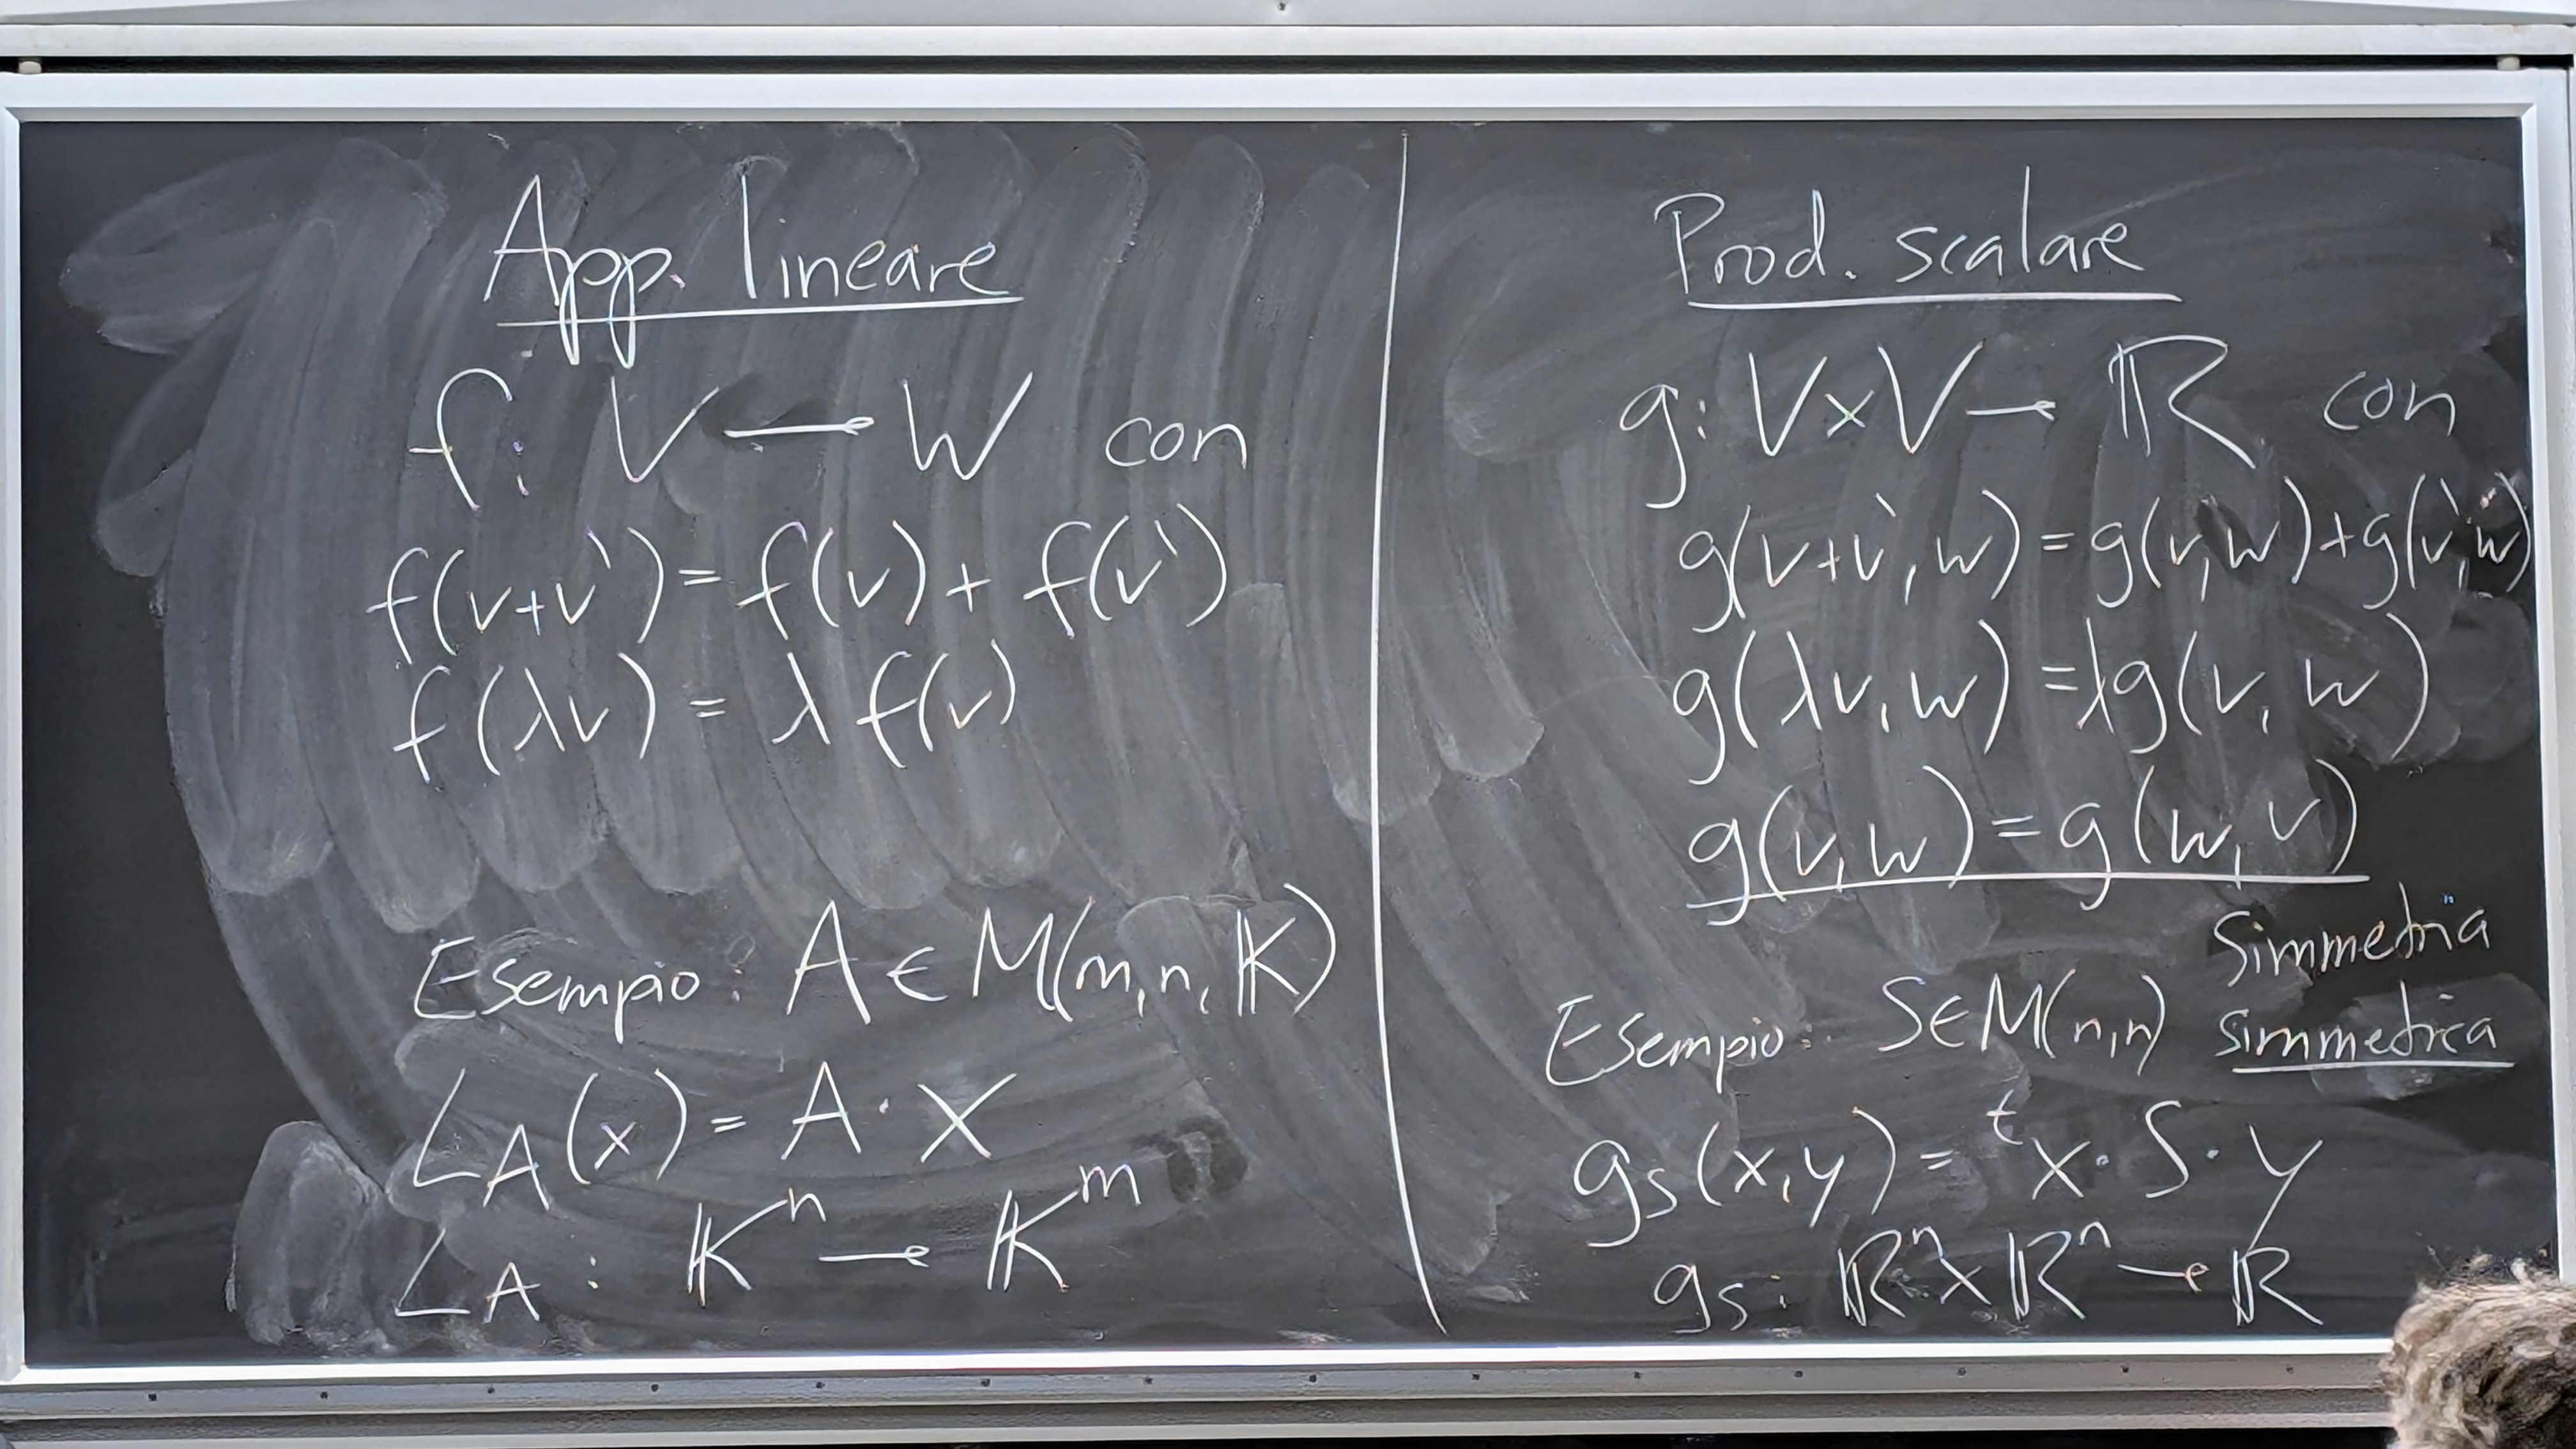 App. lineare
f: V → W con
f(v+v') = f(v) + f(v')
f(λv) = λ f(v)
Esempio: A ∈ M(m,n,𝕂)
L_A(x) = A · x
L_A : 𝕂^n → 𝕂^m
Prod. scalare
g: V×V → ℝ con
g(v+v', w) = g(v,w)+g(v',w)
g(λv, w) = λg(v, w)
g(v,w) = g(w,v)
Simmetria
Esempio: S∈M(n,n) simmetrica
g_S(x,y) = ^t x · S · y
g_S: ℝ^n × ℝ^n → ℝ